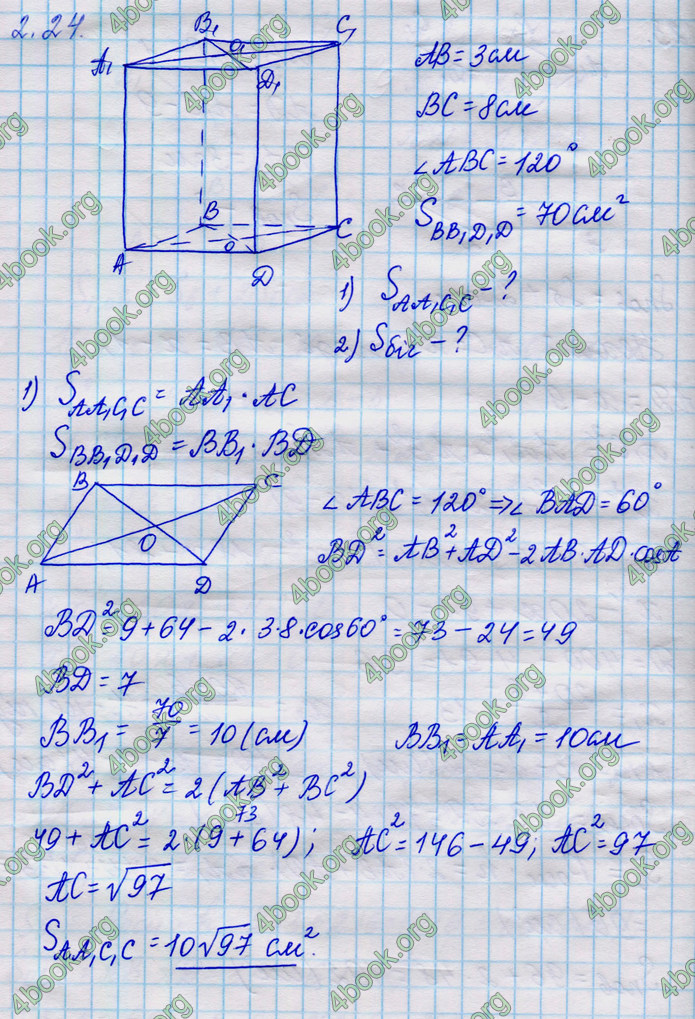 2.24.
B₁ C₁ A₁ O₁ D₁
B C A O D
AB = 3см
BC = 8см
∠ABC = 120°
S_{BB₁D₁D} = 70см²
1) S_{AA₁C₁C} - ?
2) Sбіч - ?
1) S_{AA₁C₁C} = AA₁ · AC
S_{BB₁D₁D} = BB₁ · BD
B C
A O D
∠ABC = 120° ⇒ ∠BAD = 60°
BD² = AB² + AD² - 2AB·AD·cosA
BD² = 9 + 64 - 2·3·8·cos60° = 73 - 24 = 49
BD = 7
BB₁ = 70/7 = 10 (см) BB₁ = AA₁ = 10см
BD² + AC² = 2(AB² + BC²)
73
49 + AC² = 2·(9 + 64); AC² = 146 - 49; AC² = 97
AC = √97
S_{AA₁C₁C} = 10√97 см².
4book.org